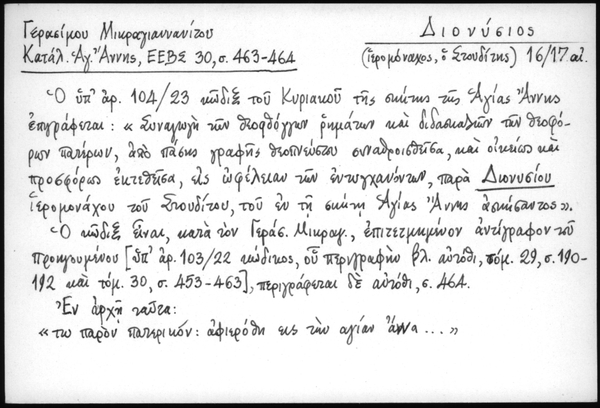 Γερασίμου Μικραγιαννανίτου
Κατάλ. Ἁγ. Ἄννης, ΕΕΒΣ 30, σ. 463-464
Διονύσιος
(ἱερομόναχος, ὁ Στουδίτης) 16/17 αἰ.
Ὁ ὑπ' ἀρ. 104/23 κῶδιξ τοῦ Κυριακοῦ τῆς σκήτης τῆς Ἁγίας Ἄννης
ἐπιγράφεται: « Συναγωγὴ τῶν θεοφθόγγων ῥημάτων καὶ διδασκαλιῶν τῶν θεοφό-
ρων πατέρων, ἀπὸ πάσης γραφῆς θεοπνεύστου συναθροισθεῖσα, καὶ οἰκείως καὶ
προσφόρως ἐκτεθεῖσα, εἰς ὠφέλειαν τῶν ἐντυγχανόντων, παρὰ Διονυσίου
ἱερομονάχου τοῦ Στουδίτου, τοῦ ἐν τῇ σκήτῃ Ἁγίας Ἄννης ἀσκήσαντος ».
Ὁ κῶδιξ εἶναι, κατὰ τὸν Γεράσ. Μικραγ., ἐπιτετμημένον ἀντίγραφον τοῦ
προηγουμένου [ὑπ' ἀρ. 103/22 κώδικος, οὗ περιγραφὴν βλ. αὐτόθι, τόμ. 29, σ. 190-
192 καὶ τόμ. 30, σ. 453-463], περιγράφεται δὲ αὐτόθι, σ. 464.
Ἐν ἀρχῇ ταῦτα:
« τω παρὸν πατερικόν: ἀφιερόθη εις τὴν αγίαν ἄννα ... »